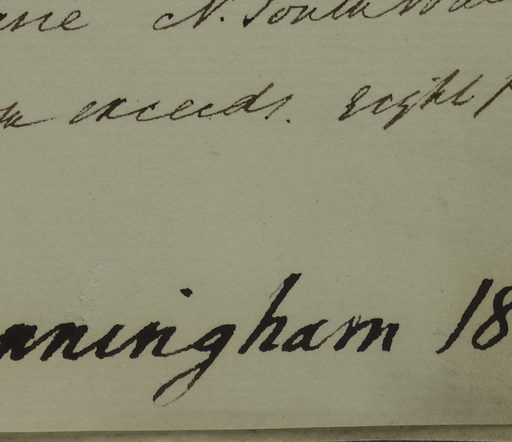 N. South Wal
exceeds. Eight
nningham 18